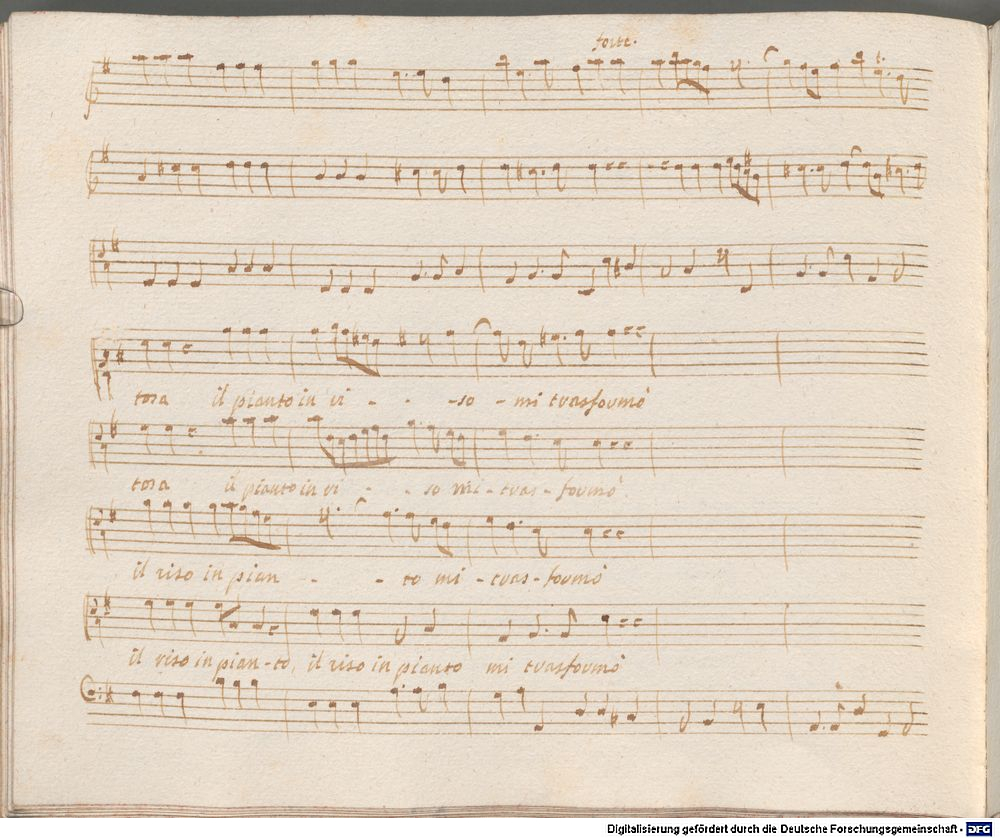 forte.
tosa il pianto in vi - - - so - mi trasformò
tosa il pianto in vi - - so mi - tras - formò
il riso in pian - - - to mi - tras - formò
il riso in pian - to, il riso in pianto mi trasformò
Digitalisierung gefördert durch die Deutsche Forschungsgemeinschaft - DFG